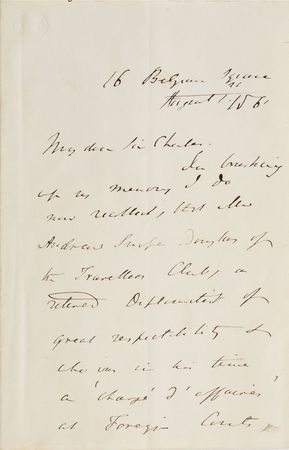 16 Belgrave Square
August /56
My dear Sir Charles.
In brushing
up my memory I do
now recollect, that Mr
Andrew Snape Douglas of
the Travellers Club, a
retired Diplomatist of
great respectability &
who was in his time
a 'chargé d'affaires'
at Foreign Courts